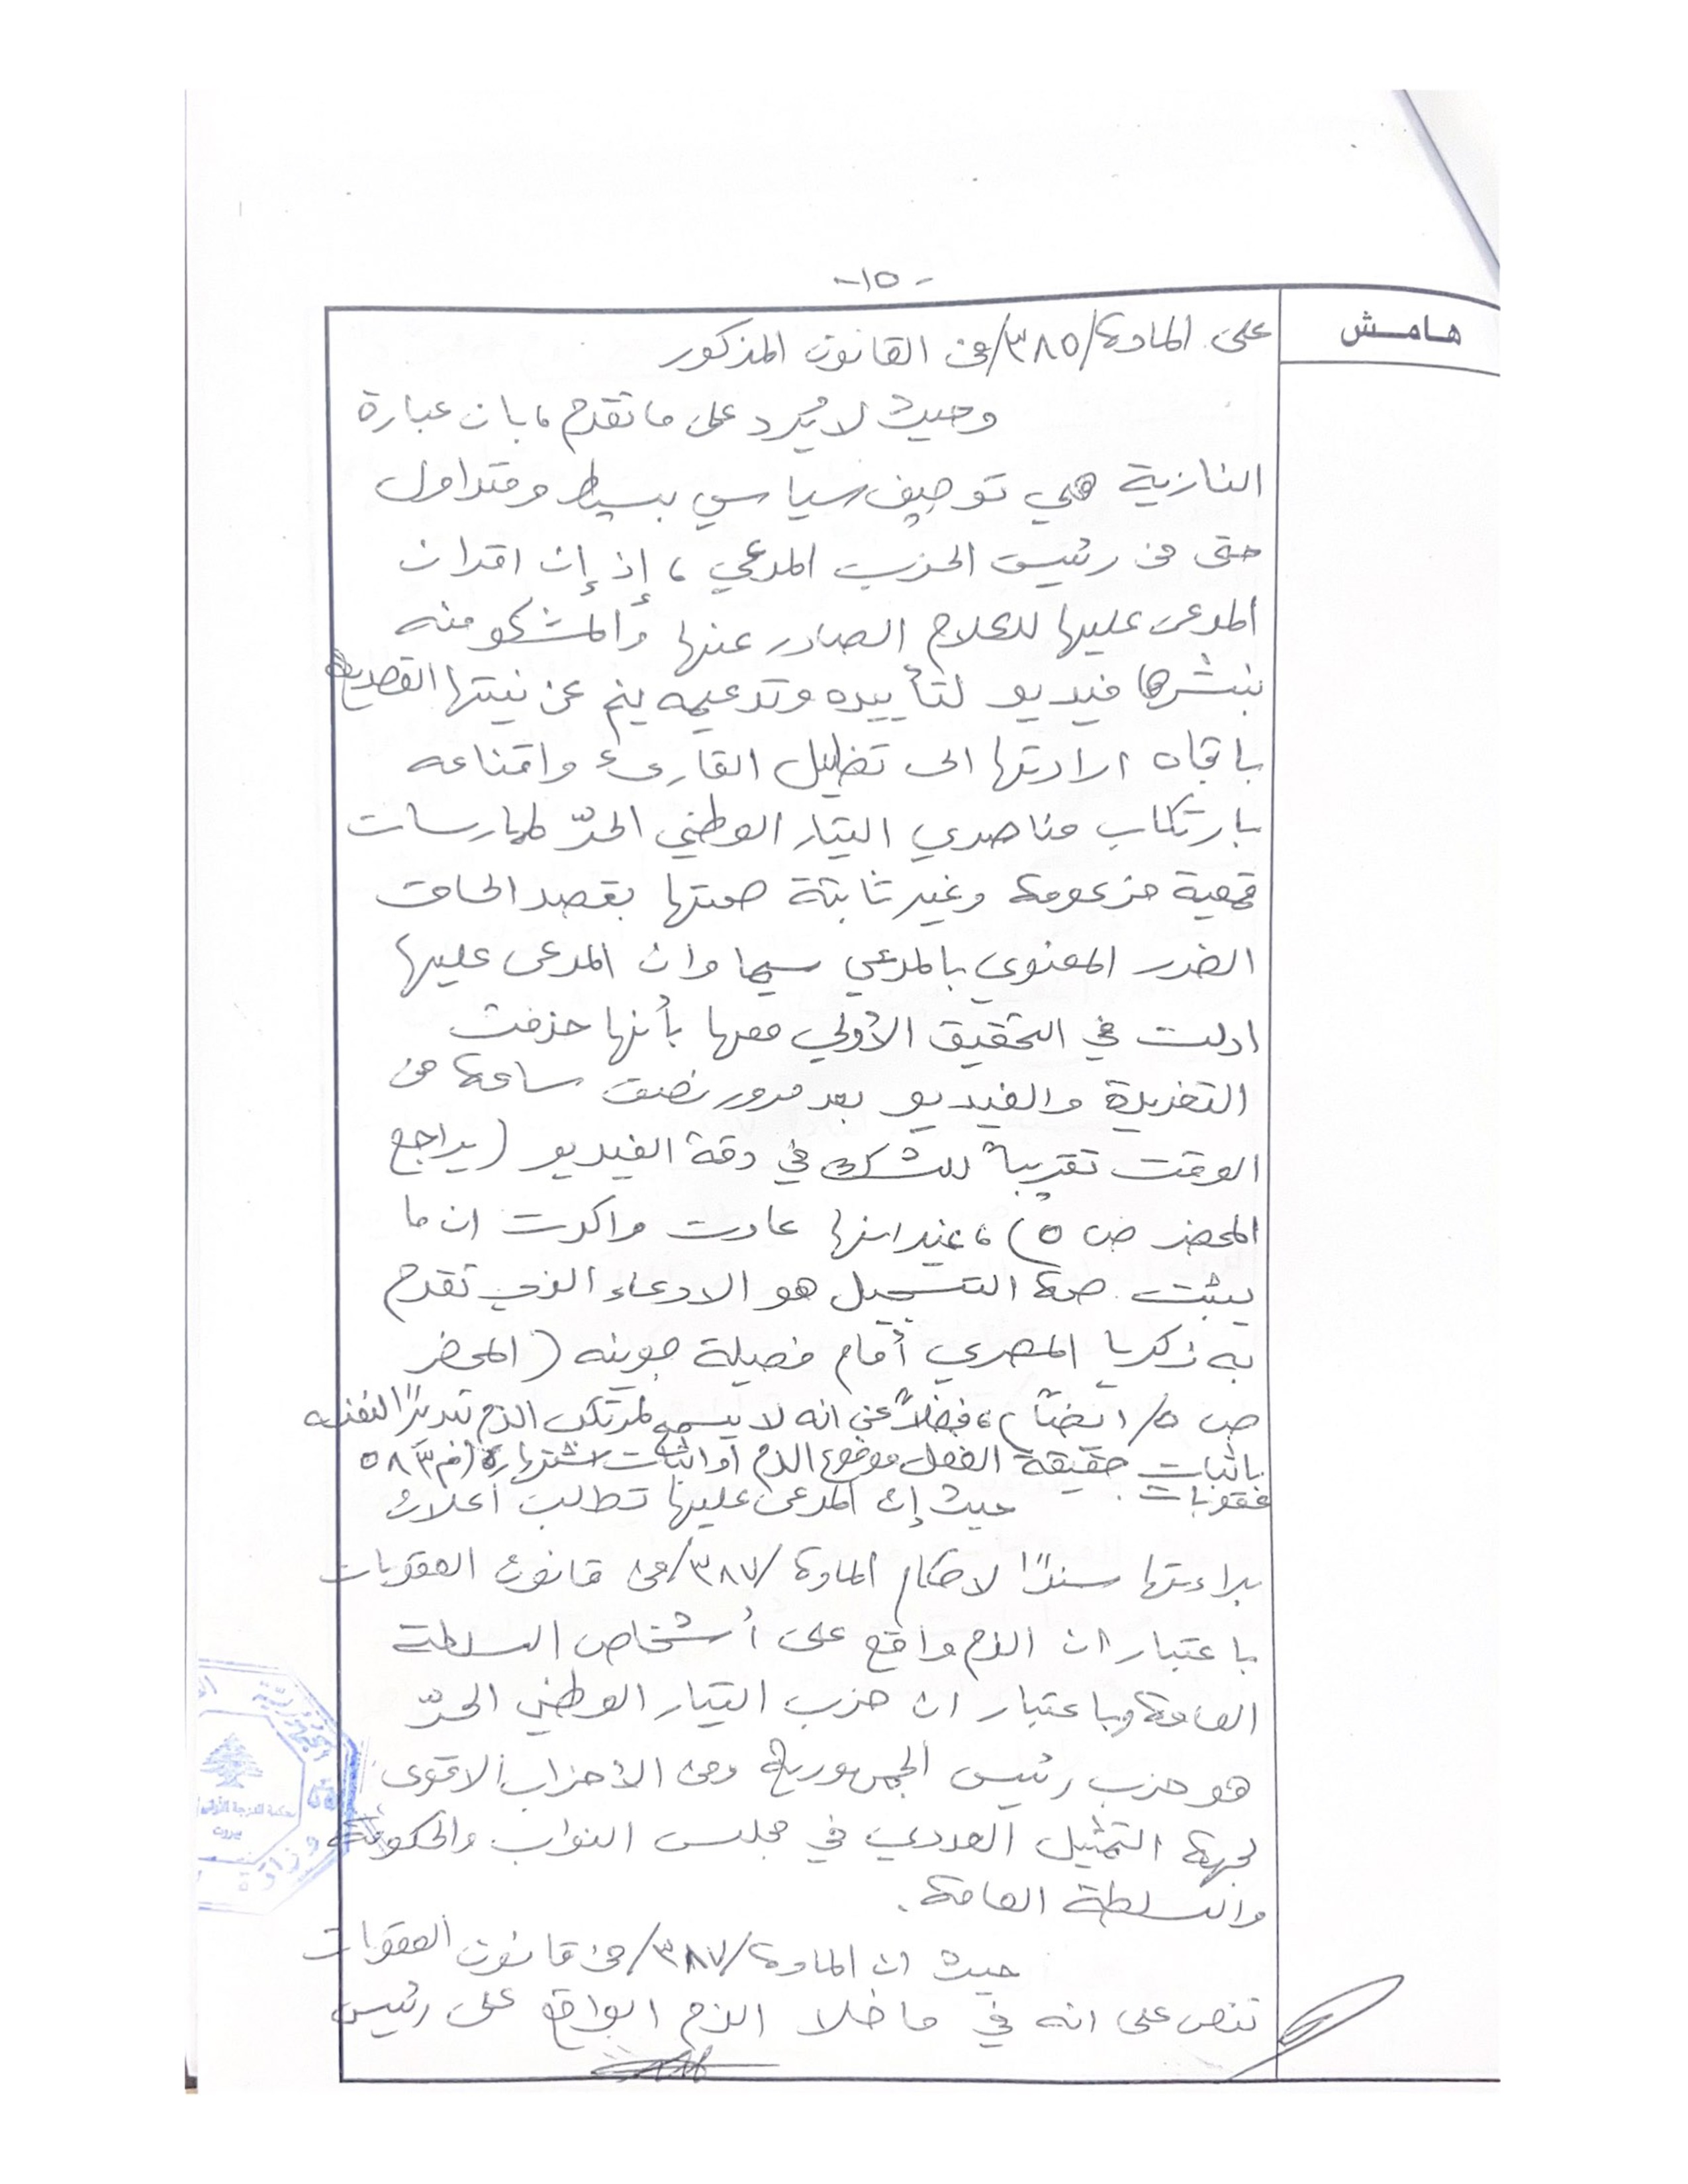 -١٥-
هامش
على المادة/٣٨٥/من القانون المذكور
وحيث لا يُرد على ما تقدم، بان عبارة
النازية هي توصيف سياسي بسيط ومتداول
حتى من رئيس الحزب المدعي، إذ إن اقران
المدعى عليها للكلام الصادر عنها والمشكو منه
بنشرها فيديو لتأييده وتدعيمه ينم عن نيتها القصدية
باتجاه ارادتها الى تضليل القارىء واقناعه
بارتكاب مناصري التيار الوطني الحرّ لممارسات
قمعية مزعومة وغير ثابتة صحتها بقصد الحاق
الضرر المعنوي بالمدعي سيما وان المدعى عليها
ادلت في التحقيق الأولي معها بأنها حذفت
التغريدة والفيديو بعد مرور نصف ساعة من
الوقت تقريباً للشك في دقة الفيديو (يراجع
المحضر ص ٥)، غير انها عادت واكدت ان ما
يثبت صحة التسجيل هو الادعاء الذي تقدم
به زكريا المصري أمام فصيلة جونيه (المحضر
ص ٥/ ايضاً)، فضلاً عن انه لا يسمح لمرتكب الذم تبريرًا لنفسه
باثبات حقيقة الفعل موضوع الذم او اثبات اشتهاره (م ٥٨٣
عقوبات
حيث إن المدعى عليها تطلب اعلان
براءتها سندًا لاحكام المادة /٣٨٧/من قانون العقوبات
باعتبار ان الذم واقع على أشخاص السلطة
العامة وباعتبار ان حزب التيار الوطني الحرّ
هو حزب رئيس الجمهورية ومن الأحزاب الاقوى
لجهة التمثيل العددي في مجلس النواب والحكومة
والسلطة العامة.
حيث ان المادة/٣٨٧/من قانون العقوبات
تنص على انه في ما خلا الذم الواقع على رئيس
الجمهورية
محكمة الدرجة الأولى
بيروت
وزارة